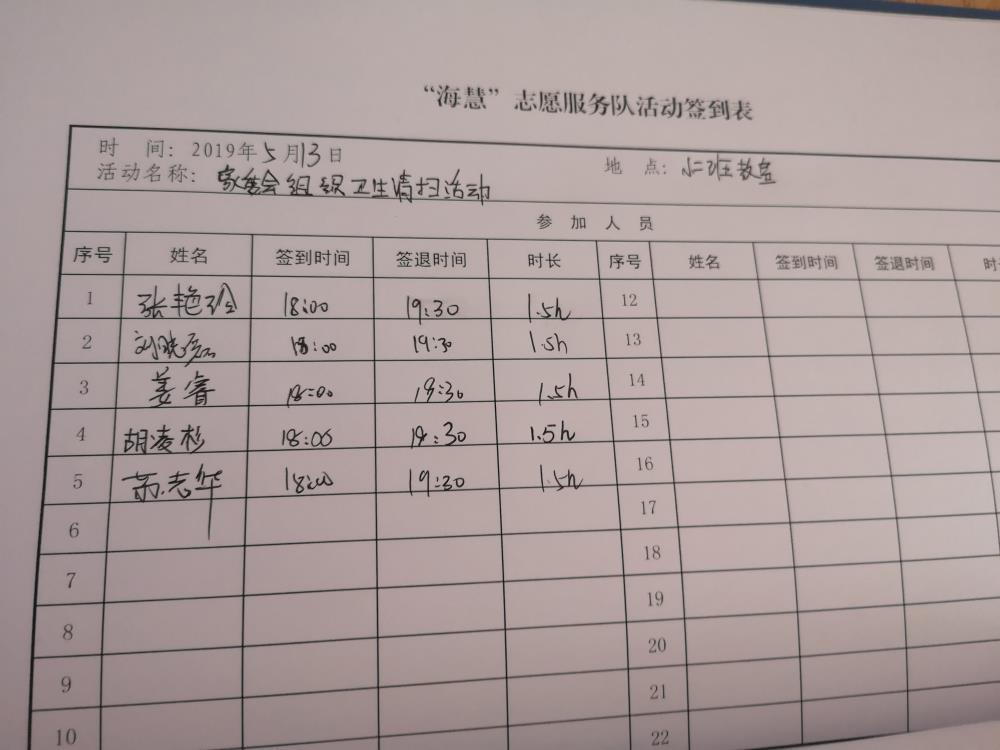 “海慧”志愿服务队活动签到表
时 间：2019年5月13日 地 点：小二班教室
活动名称：家委会组织卫生清扫活动
参 加 人 员
序号 姓名 签到时间 签退时间 时长 序号 姓名 签到时间 签退时间 时
1 张艳玲 18:00 19:30 1.5h 12
2 刘晓磊 18:00 19:30 1.5h 13
3 姜睿 18:00 19:30 1.5h 14
4 胡凌杉 18:00 19:30 1.5h 15
5 志华 18:00 19:30 1.5h 16
6 17
7 18
8 19
9 20
10 21
22